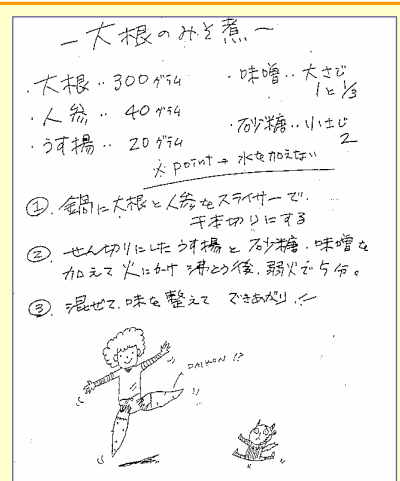 －大根のみそ煮～
・大根‥300グラム
・人参‥40グラム
・うす揚‥20グラム
・味噌‥大さじ
1と1/3
・砂糖‥小さじ
2
※point→水を加えない
①.鍋に大根と人参をスライサーで、
千本切りにする
②.せん切りにしたうす揚と砂糖、味噌を
加えて火にかけ沸とう後、弱火で5分。
③.混ぜて、味を整えてできあがり.
DAIKON!?